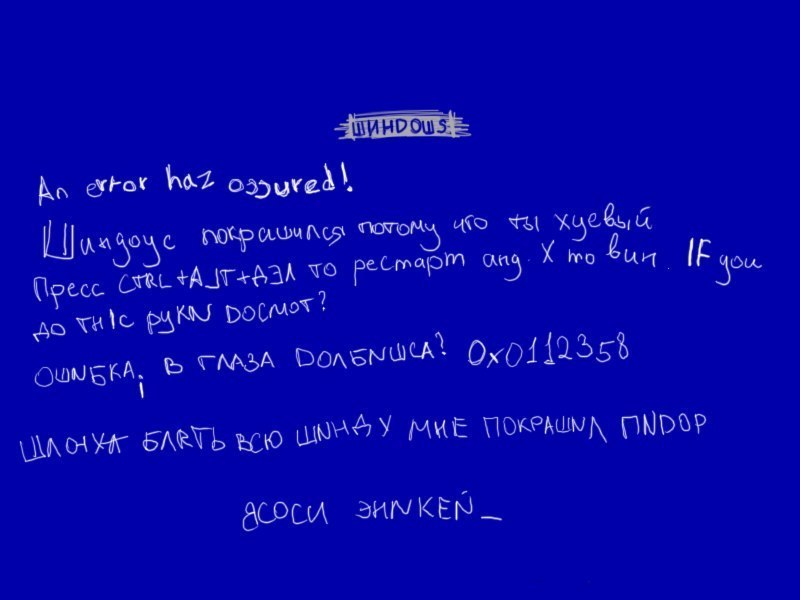 ШИНDOWS
An error haz ossured!
Шиндоус покрашился потому что ты хуевый
Пресс CTRL+ALT+ДЭЛ то рестарт анд X то вин. IF you
до тніс рукN DOCMOT?
ОШИБКА; В ГЛАЗА DОЛБИШСА? 0x0112358
ШЛЮХА БЛЯТЬ ВСЮ ШИНДУ МНЕ ПОКРАШИЛ ПИDОР
ЯСОСИ ЭНИКЕЙ_